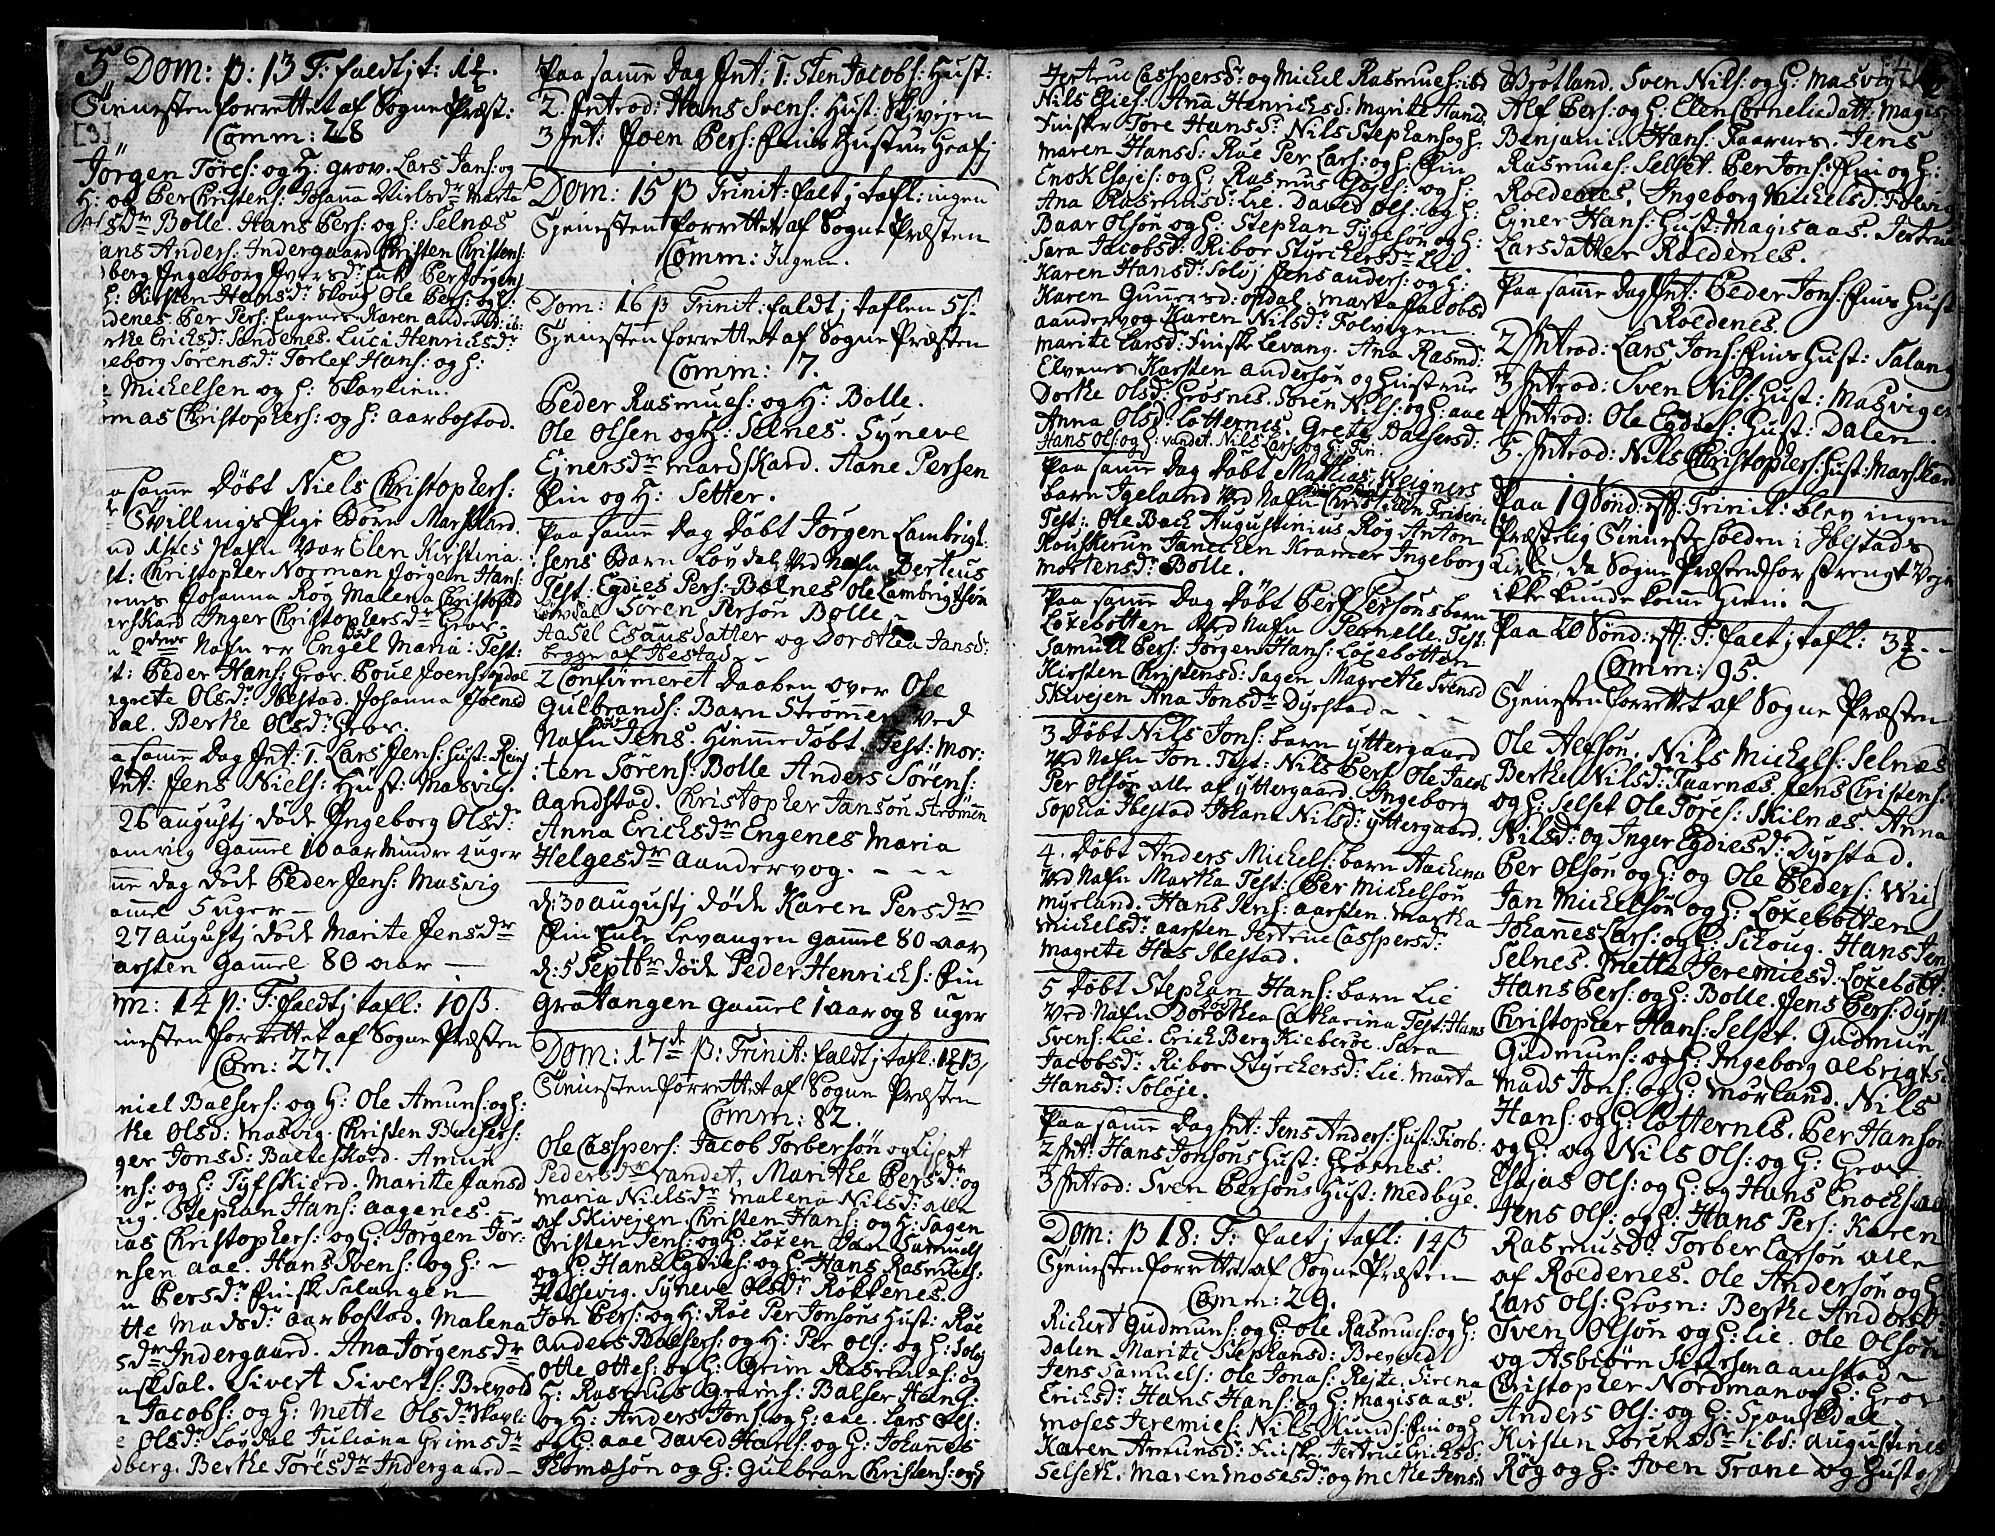 Dom: p: 13 T: faldt j t: 1½.
Tienesten forrettet af Sogne Præst:
[3] Comm: 28
Jörgen Töres: og H: grov. Lars Jans: og
H: og Per Christens: Johanna Nielsdr Marta
dr Bolle. Hans Pers: og H: Selnæs
Hans Anders: Indergaard Christen Christens:
berg Ingeborg Iversdr Enk Per Jörgens
H: Kirsten Hansdr Skoug Ole Pers: og H:
denes Per Pers: Engenes Karen Andersd: ib:
Ericksd: Sandenes. Luci Henricksdr
eborg Sörensdr Torlef Hans: og H:
Michelsen og H: Skavlien.
omas Christophers: og H: aarbostad.
a samme Döbt Niels Christophers:
Tvillings Pige Börn Marskard.
Nafn Var Elen Kirstina.
t: Christopher Norman Jörgen Hans:
enes Johanna Röy Malena Christophd
arskard Inger Christophersdr Grov.
Nafn er Engel Maria: Test:
t: Peder Hans: Grov. Poul Joens: Opdal
grete Olsdr Ibestad. Johanna Joensd
dal. Berthe Olsdr Grov.
a samme Dag Int: 1. Lars Jens: Hust:
Int: Jens Niels: Hust: Masvig.
26 augustj döde Ingeborg Olsdr
amvig Gammel 10 aar Mindre 4 uger
me dag döde Peder Jens: Masvig
ammel 5 uger
27 augustj döde Marite Jensdr
arsten Gammel 80 aar
Dom: 14 p: T: faldt j tafl: 10 ß.
Tienesten forrettet af Sogne Præsten
Com: 27.
Daniel Balsers: og H: Ole Amuns: og H:
the Olsd: Masvig. Christen Balsers:
ger Jonsd: Balteskard. Amun
ens: og H: Tyfskierd. Maritte Jansd
oug. Stephan Hans: aagenes.
mas Christophers: og H: Jörgen Jör-
ensen aae. Hans Svens: og H:
n Persdr Finsk Salangen
the Madsdr aarbostad. Malena
sdr Indergaard. Ana Jörgensdr
anskdal. Sivert Siverts: Brevold
n Jacobs: og H: Mette Olsdr Skavli:
Olsdr Lovdal Juliana Grimsdr
dberg. Berthe Töresdr Indergaard
Paa samme Dag Int: 1: Sten Jacobs: Hust:
2 Introd: Hans Svens: Hust: Skivejen
3 Int: Joen Pers: Fins Hustrue Graf:
Dom: 15 p Trinit: falt j tafl: ingen
Tienesten forrettet af Sogne Præsten
Comm: Ingen.
Dom: 16 p Trinit: faldt j taflen 5 ß:
Tienesten forrettet af Sogne Præsten
Comm: 7.
Peder Rasmues: og H: Bolle.
Ole Olsen og H: Selnes. Syneve
Ejnersdr Mardskard. Aane Persen
Fin og H: Setter.
Paa samme dag Döbt Jörgen Lambrigt:
sens Barn Lovdal Ved Nafn Berteus
Test: Egdies Pers: Bolnes Ole Lambrigtsön
Lövdal Sören Persön Bolle
Aasel Esausdatter og Dorothea Jansd:
begge af Ibestad
2 Confirmeret Daaben over Ole
Gulbrands: Barn Strömmen Ved
Nafn Jens. Hiemmedöbt. Test: Mor:
:ten Sörens: Bolle Anders Sörens:
Aandstad. Christopher Jansön Strömen
Anna Ericksdr Engenes Maria
Helgesdr Aandervog.
d: 30 augustj döde Karen Persdr
Fin Enke Levangen gammel 80 aar
d: 5 Septbr döde Peder Henrichs: Fin
Gratangen Gammel 1 aar og 8 uger
Dom: 17de p: Trinit: faldt j tafl:
Tienesten forrettet af Sogne Præsten
Comm: 82.
Ole Casspers: Jacob Torbersön og Lisbet
Pedersdr Vandet, Marithe Persdr og
Maria Nielsdr Malena Nilsdr alle
af Skivejen Christen Hans: og H: Sagen
Christen Jens: og H: Loxen Dan Samuels
og H: Hans Egdies: og H: Hans Rasmus:
Hallevig. Syneve Olsdr Rokkenes.
Jon Pers: og H: Roe Per Jonsöns Hust: Roe
Anders Balsers: og H: Per Ols: og H: Soløj
Otte Ottes: og H: Grim Rasmues: og
H: Rasmus Grims: Balser Hans:
og H: Anders Jons: og H: aae. Lars Ols:
og H: aae David Hans: og H: Johannes
Thomæsön og H: Gulbran Christens: og H
Jertrue Casspersdr og Michel Rasmues: ib
Nils Elies: Anna Henricksd: Marite Hand
Finsker Tore Hansdr Nils Stephans: og H:
Maren Hansd: Roe Per Lars: og H: Fin
Enok Esajes: og H: Rasmus Esajes: og H:
Ana Rasmusd: Lie. David Ols: og H:
Baar Olsön og H: Stephan Tybesön og H:
Sara Jacobsd: Ribor Styrckersdr Lie
Karen Hansdr Soløj Jens Anders: og H:
Karen Gunnersd: Opdal. Marta Jacobsd
aandervog Karen Nilsdr Folvigen
Marite Larsd: Finske Levang. Ana Rasmd:
Elvenes Karsten Andersön og Hustrue
Dorthe Olsdr Grosnes. Sören Nils: og H: aae
Anna Olsd: Lotternes. Grete Balsersd:
Hans Ols: og H: Vandet. Nils Lars: og H: Fin.
Paa samme Dag Döbt Mathias Weigners
barn Igeland Ved Nafn Christian Frideric
Test: Ole Bach Augustinius Röy Anton
Rouskerun Janicken Kramer Ingeborg
Mortensdr Bolle.
Paa samme Dag Döbt Per Persöns barn
Loxebotten Ved Nafn Pernelle. Test:
Samuel Pers: Jörgen Hans: Loxebotten
Kirsten Christensd: Sagen Magrethe Svensd
Skivejen Ana Jonsdr Dyrstad
3 Döbt Nils Jons: barn Yttergaard
Ved Nafn Jon. Test: Nils Pers: Ole Jacobs
Per Olsön alle af Yttergaard. Ingeborg
Sophia Ibestad Johana Nilsdr Yttergaard.
4. Döbt Anders Michels: barn Aachena
Ved Nafn Martha Test: Per Michelsön
Myrland. Hans Jens: Aarsten. Martha
Michelsdr aarsten Jertrue Casspersdr
Magrete Has Ibestad.
5 Döbt Stephan Hans: barn Lie
Ved Nafn Dorothea Catharina Test: Hans
Svens: Lie. Erick Berg Kieberöe. Sara
Jacobsdr Ribor Styrckersd: Lie Marta
Hansd: Soløje.
Paa samme Dag Int: Jens Anders: Hust: Fiorb:
2 Int: Hans Jonsöns Hust: Grosnes.
3 Introd: Sven Persöns Hust: Medbye.
Dom: p 18: T: falt j tafl: 14 ß
Tienesten forrettet af Sogne Præsten
Comm: 29.
Rickert Gudmuns: og H: Ole Rasmues: og H:
Dalen Marite Stephansd: Brevold
Jens Samuels: Ole Jonas: Rejte. Sirena
Ericksdr Hans Hans: og H: Magisaas.
Moses Jeremies: Nils Knuds: Fin og H
Karen Amunsd: Finsk. Jertrue Ericksd:
Selseth. Maren Mosesdr og Mette Jensd
Brotland. Sven Nils: og H: Masvig
Alf Pers: og H: Elen Cornelisdatt: Magis:
Benjamin Hans: Faarnes. Jens
Rasmues: Selset. Per Jons: Fin og H:
Roldenes. Ingeborg Michelsd: Folvig
Egner Hans: Hust: Magisaas. Jertrue
Larsdatter Roldenes.
Paa samme Dag Int: Peder Jons: Fins Hust
Roldenes.
2 Introd: Lars Jons: Fins Hust: Salang
3 Introd: Sven Nils: Hust: Masvigen
4 Introd: Ole Egdies: Hust: Dalen.
5. Introd: Nils Christophers: Hust: Marskard
Paa 19 Sönd: eft: Trinit: blev ingen
Præstelig Tieniste holden i Ibestads
Kirke, da Sogne Præsten for strengt Vejr
ikke kunde komme hien.
Paa 20 Sönd: eft: T: falt j tafl: 3½
Comm: 95.
Tienesten forrettet af Sogne Præsten
Ole Alfsön, Nils Michels: Selnæs
Berthe Nilsd: Faarnæs. Jens Christens:
og H: Selset Ole Töres: Skilnæs. Anna
Nilsdr og Inger Egdiesd: Dyrstad.
Per Olsön og H: og Ole Peders: Wiig
Jan Michelsön og H: Loxebotten
Johannes Lars: og H: Skoug. Hans Jens
Selnes. Mette Jeremiesd. Loxebott:
Hans Pers: og H: Bolle. Jens Pers: Dyrst
Christopher Hans: Selset. Gudmun
Gudmuns: og H: Ingeborg Albrigtsd
Mads Jons: og H: Morland. Nils
Hans: og H: Lotternes. Per Hansön
og H: og Nils Ols: og H: Grov
Esajas Ols: og H: og Hans Enochs:
Jens Ols: og H: Hans Pers: Karen
Rasmusdr Torber Larsön alle
af Roldenes. Ole Andersön og H
Lars Ols: Grosn: Berthe Andersd
Sven Olsön og H: Lie. Ole Olsön
og Asbiörn Siversen Aanstad
Christopher Nordman og H: Grov
Anders Ols: og H: Spansdal,
Kirsten Sörensdr ibd: Augustines
Röy og H: Iven Trane og Hust